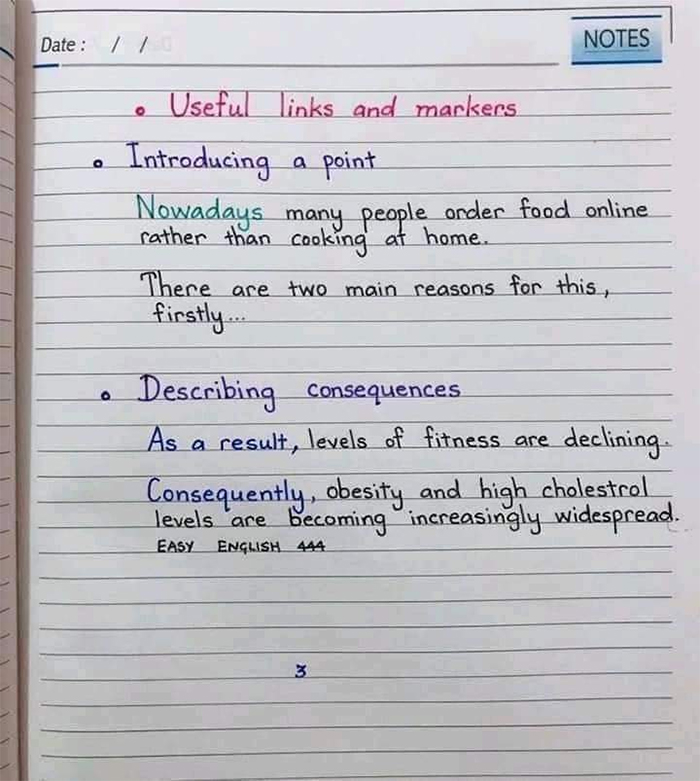 Date : / /
NOTES
Useful links and markers
Introducing a point
Nowadays many people order food online
rather than cooking at home.
There are two main reasons for this,
firstly...
Describing consequences
As a result, levels of fitness are declining.
Consequently, obesity and high cholestrol
levels are becoming increasingly widespread.
EASY ENGLISH 444
3